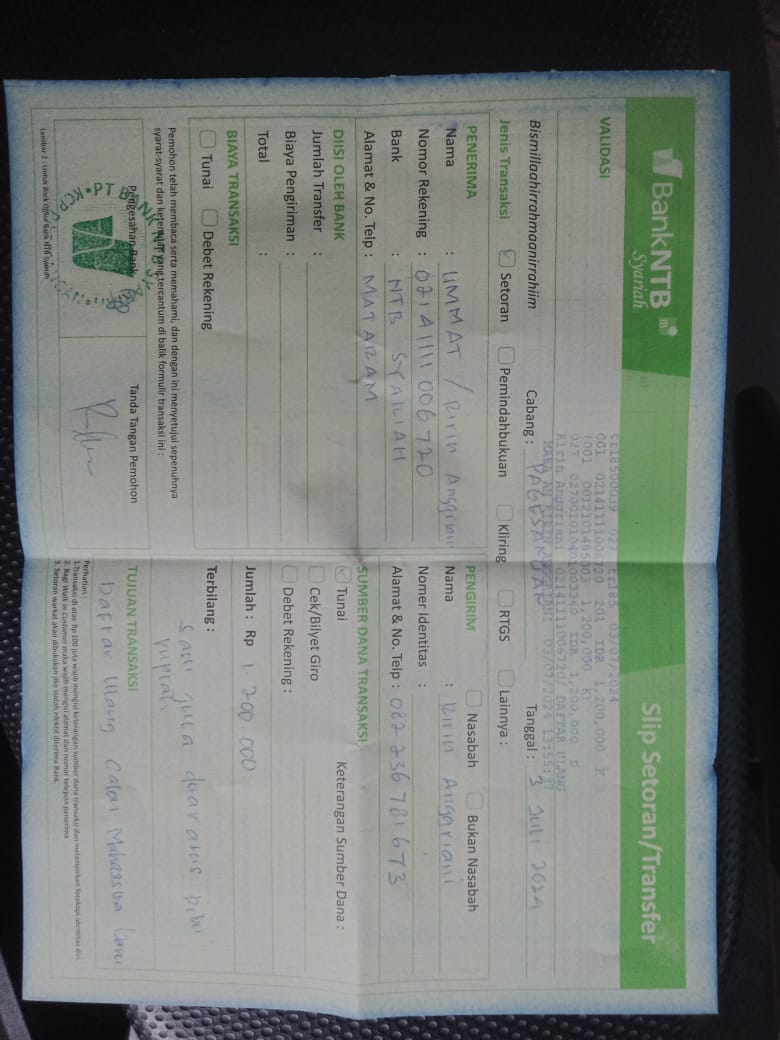 BankNTB
Syariah
Slip Setoran/Transfer
VALIDASI
03/07/2024
201 IDR 1,200,000 K
1,200,000 K
IDR 1,200,000 D
DAFTAR ULANG
03/07/2024
Bismillaahirrahmaanirrahiim
Cabang : PAGESANGAN
Tanggal : 3 Juli 2024
Jenis Transaksi Setoran Pemindahbukuan Kliring RTGS Lainnya :
PENERIMA
Nama : UMMAT / Ririn Anggriani
Nomor Rekening : 0214111006720
Bank : NTB SYARIAH
Alamat & No. Telp : MATARAM
PENGIRIM
Nasabah Bukan Nasabah
Nama : Ririn Anggriani
Nomer Identitas :
Alamat & No. Telp : 082236781673
DIISI OLEH BANK
Jumlah Transfer :
Biaya Pengiriman :
Total :
SUMBER DANA TRANSAKSI
Keterangan Sumber Dana :
Tunai
Cek/Bilyet Giro
Debet Rekening :
BIAYA TRANSAKSI
Tunai Debet Rekening
Jumlah : Rp 1.200.000
Terbilang : satu juta dua ratus ribu
rupiah
Pemohon telah membaca serta memahami, dan dengan ini menyetujui sepenuhnya
syarat-syarat dan ketentuan yang tercantum di balik formulir transaksi ini :
Pengesahan Bank
Tanda Tangan Pemohon
PT BANK NTB SYARIAH
KCP
TUJUAN TRANSAKSI
Daftar Ulang Calon Mahasiswa
Perhatian :
1.Transaksi di atas Rp 100 juta wajib mengisi keterangan sumber dana transaksi dan melampirkan fotokopi identitas diri.
2. Bagi Walk in Customer maka wajib mengisi alamat dan nomor telepon penerima
3. Setoran warkat akan dibukukan jika sudah efektif diterima Bank.
Lembar 2 : Untuk Back Office Bank NTB Syariah